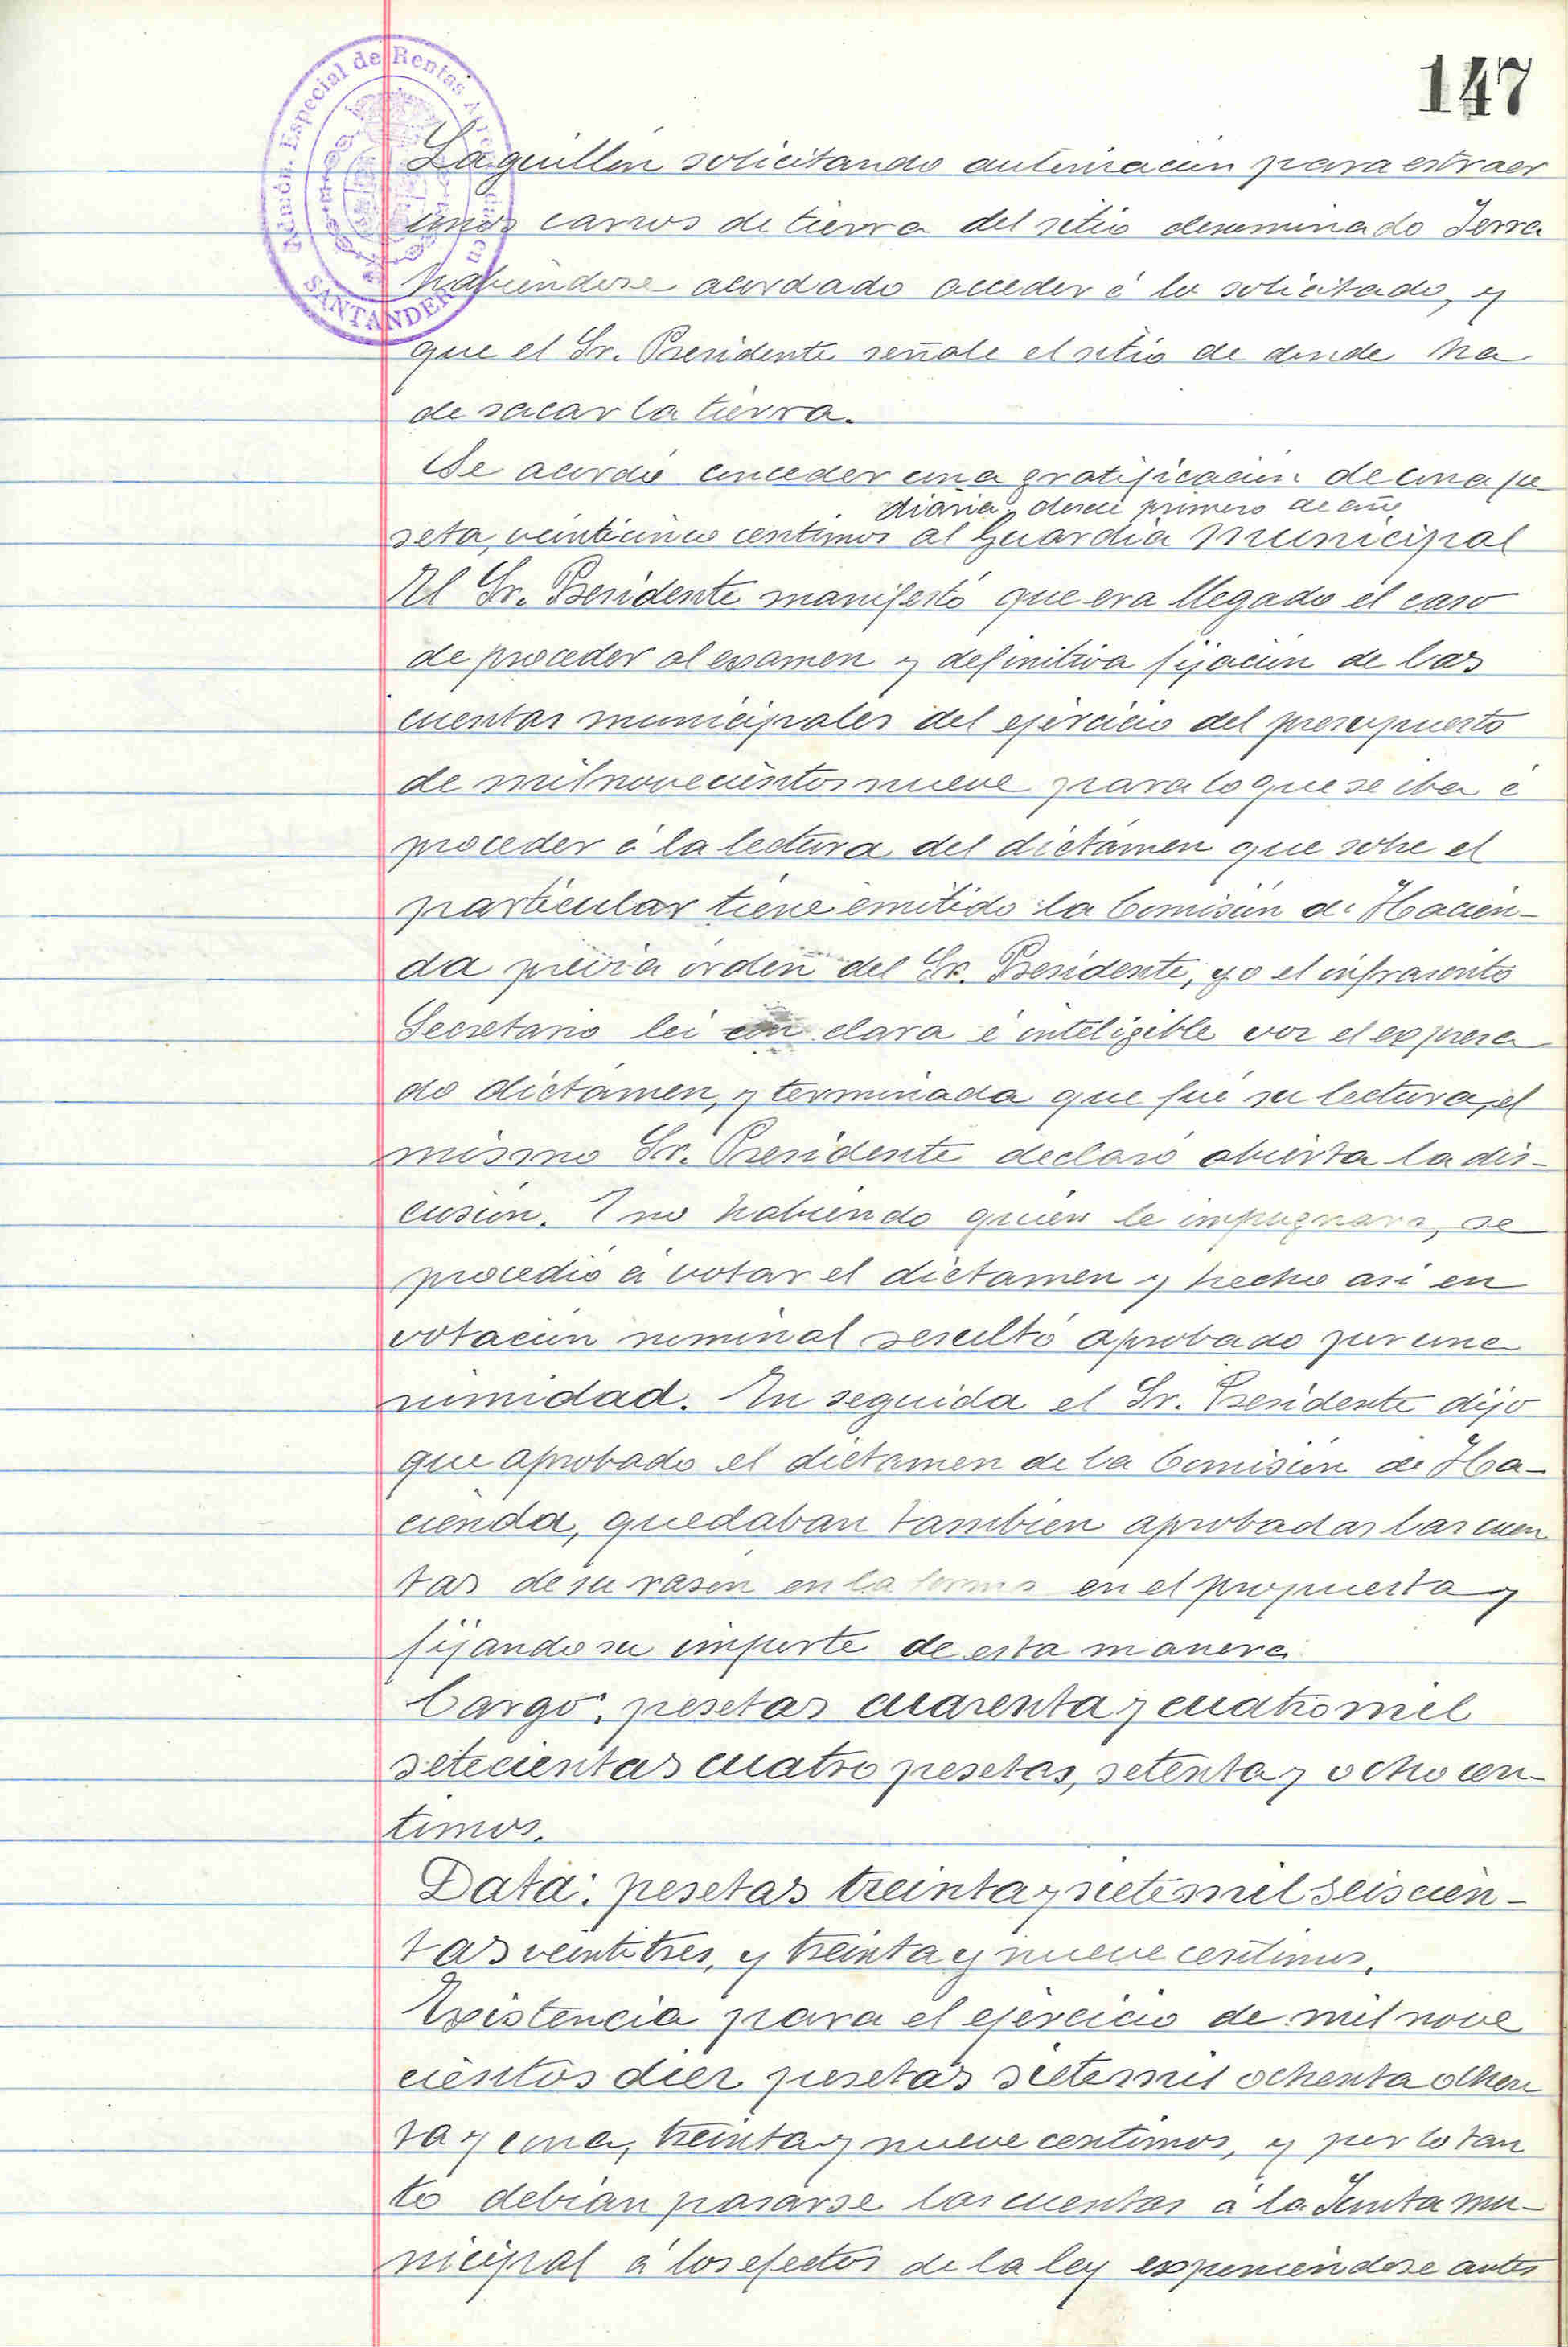 147
Admón. Especial de Rentas Arrendadas en
SANTANDER
Laguillón solicitando autorización para estraer
unos carros de tierra del sitio denominado Serra
habiéndose acordado acceder á lo solicitado, y
que el Sr. Presidente señale el sitio de donde ha
de sacar la tierra.
Se acordó conceder una gratificación de una pe-
diaria desde primero de año
seta, veinticinco centimos al Guardia Municipal
El Sr. Presidente manifestó que era llegado el caso
de proceder al examen y definitiva fijación de las
cuentas municipales del ejercicio del presupuesto
de mil novecientos nueve para lo que se iba á
proceder á la lectura del dictámen que sobre el
particular tiene emitido la Comisión de Hacien-
da previa órden del Sr. Presidente, yo el infrascrito
Secretario lei con clara é inteligible voz el expresa
do dictámen, y terminada que fué su lectura, el
mismo Sr. Presidente declaró abierta la dis-
cusión. Y no habiendo quién le impugnara, se
procedió á votar el dictamen y hecho asi en
votación nominal resultó aprobado por una
nimidad. En seguida el Sr. Presidente dijo
que aprobado el dictamen de la Comisión de Ha-
cienda, quedaban tambien aprobadas las cuen
tas de su rasón en la forma en el propuesta y
fijando su importe de esta manera
Cargo: pesetas cuarenta y cuatro mil
setecientas cuatro pesetas, setenta y ocho cen-
timos.
Data: pesetas treinta y siete mil seiscien-
tas veintitres, y treinta y nueve centimos.
Existencia para el ejercicio de mil nove
cientos diez pesetas siete mil ochenta ochen
ta y una, treinta y nueve centimos, y por lo tan
to debian pasarse las cuentas á la Junta mu-
nicipal á los efectos de la ley exponiendose antes